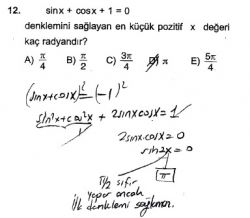 12. sinx + cosx + 1 = 0
denklemini sağlayan en küçük pozitif x değeri
kaç radyandır?
A) π/4 B) π/2 C) 3π/4 D) π E) 5π/4
(sinx+cosx)² = (-1)²
sin²x + cos²x + 2sinxcosx = 1
1
2sinx.cosx = 0
sin2x = 0
π/2 sıfır π
yapar ancak
ilk denklemi sağlamaz.